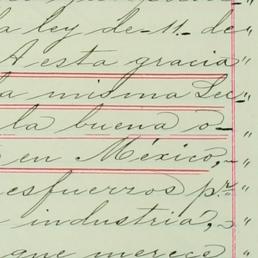 a ley de 11 de
A esta gracia "
a misma Lec- "
la buena o- "
en México, - "
esfuerzos pr "
industria, -
que merece "